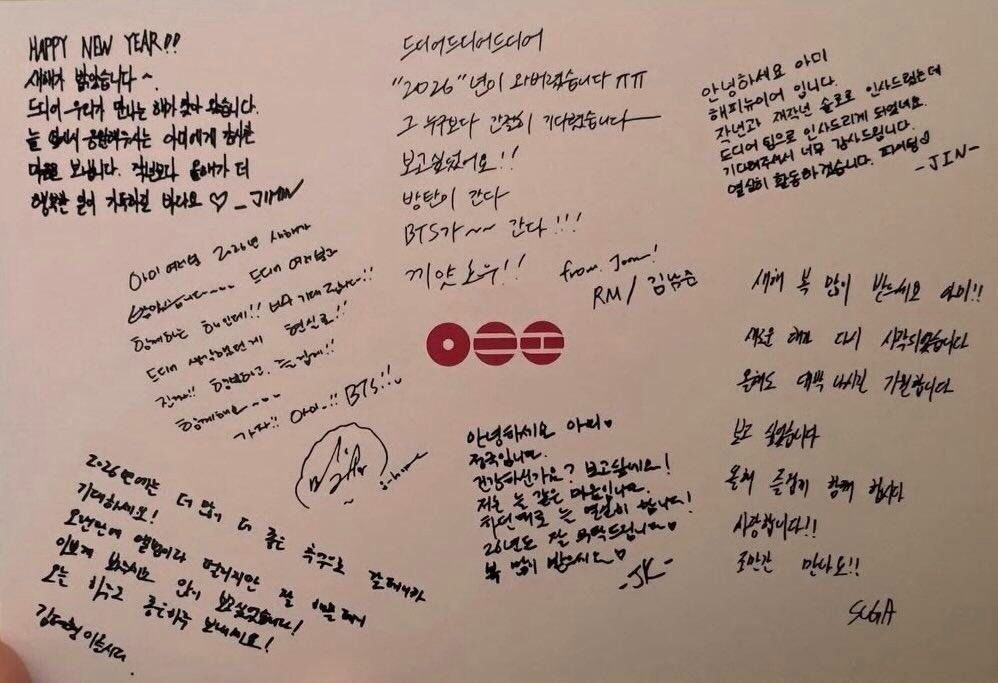 HAPPY NEW YEAR!!
새해가 밝았습니다~
드디어 우리가 만나는 해가 찾아 왔습니다.
늘 옆에서 응원해주시는 아미에게 감사한
마음을 보냅니다. 작년보다 올해가 더
행복한 일이 가득하길 바라요 ♡ - JIMIN
드디어드디어드디어
"2026"년이 와버렸습니다 ㅠㅠ
그 누구보다 간절히 기다렸습니다
보고싶었어요!!
방탄이 간다
BTS가~~ 간다!!!
끼얏호우!!
from. Joon!
RM / 김남준
안녕하세요 아미
해피뉴이어 입니다.
작년과 재작년 솔로로 인사드렸는데
드디어 팀으로 인사드리게 되었네요.
기다려주셔서 너무 감사드립니다.
열심히 활동하겠습니다. 파이팅♡
-JIN-
아미 여러분 2026년 새해가
밝았습니다.... 드디어 여러분과
함께하는 해인데!! 너무 기대됩니다!!
드디어 생각했던게 현실로!!
진짜!! 행복하고, 즐겁게!!
함께해요....
가자!! 아미..!! BTS!!
j-hope
새해 복 많이 받으세요 아미!!
새로운 해가 다시 시작되었습니다
올해도 대박 나시길 기원합니다
보고 싶었습니다
올해 즐겁게 함께 합시다
사랑합니다!!
조만간 만나요!!
SUGA
안녕하세요 아미♡
정국입니다.
건강하신가요? 보고싶네요!
저는 늘 같은 마음입니다.
하던대로 늘 열심히 합니다!
26년도 잘 부탁드립니다♡
복 많이 받으세요♡
-JK-
2026년에는 더 많이 더 좋은 추억으로 갈테니까
기대하세요!
오랜만에 앨범이라 떨리지만 잘
이쁘게 봐주시고 많이 보고싶었습니다!
오늘 하루도 좋은하루 보내세요!
김태형 이었습니다.